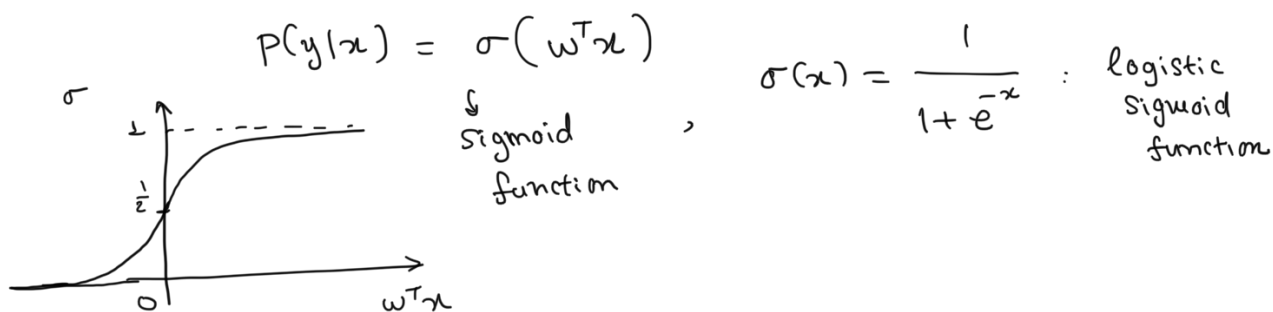 P(y|x) = σ(wᵀx)
↓
sigmoid
function
,
σ(x) = 1 / (1 + e^-x) : logistic
sigmoid
function
σ
1
1/2
0
wᵀx